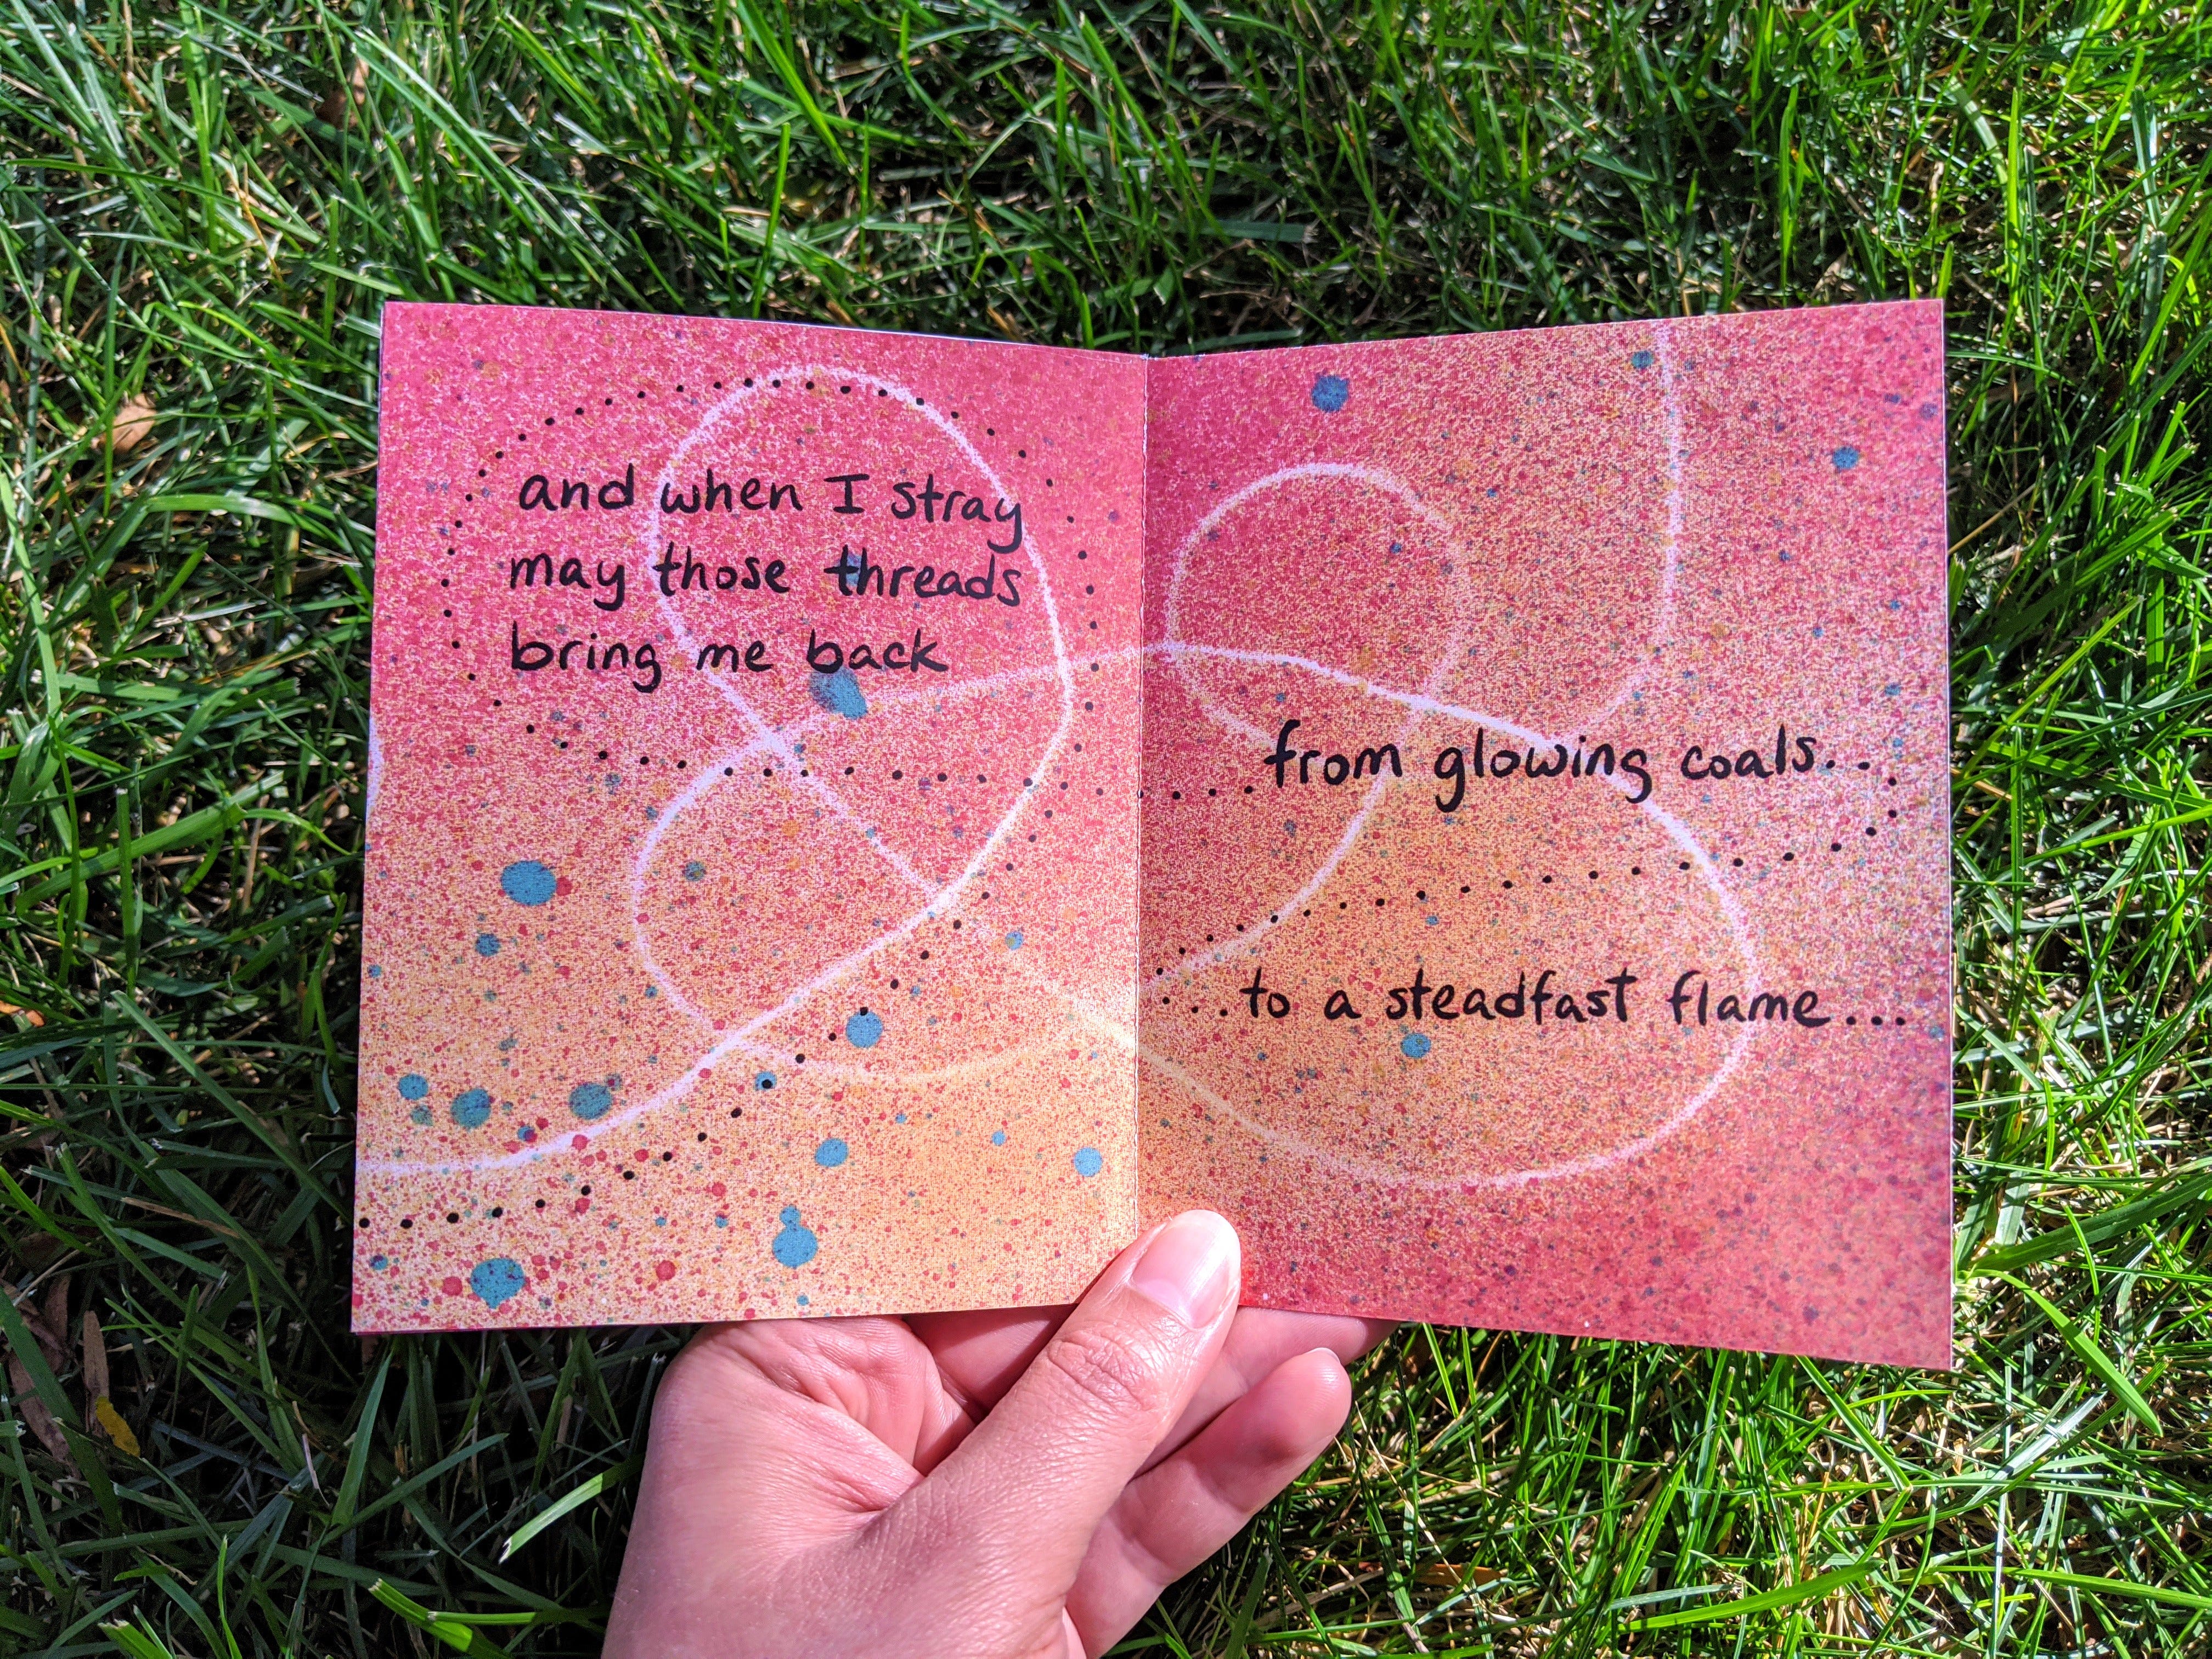 and when I stray
may those threads
bring me back
from glowing coals...
...to a steadfast flame...